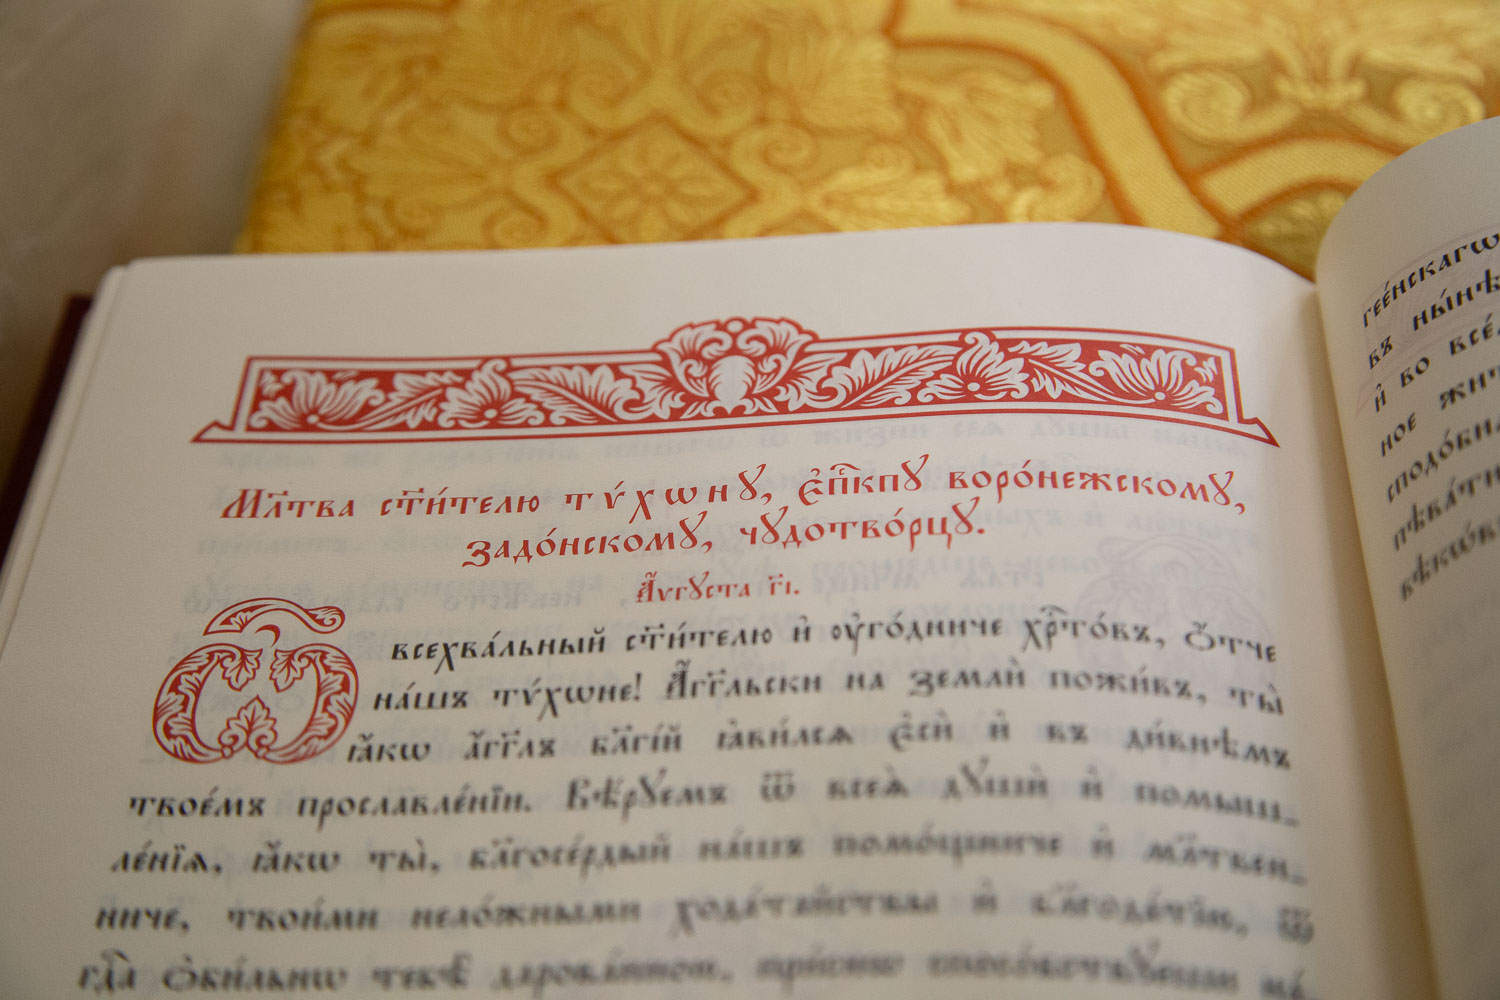 Мл҃тва ст҃и́телю тѵ́хѡнꙋ, є҆пⷭ҇кпꙋ воро́нежскомꙋ,
задо́нскомꙋ, чꙋдотво́рцꙋ.
А҆́ѵгꙋста г҃і.
Ѽ всехва́льный ст҃и́телю и҆ ᲂу҆го́дниче хрⷭ҇то́въ, ѻ҆́тче
на́шъ тѵ́хѡне! А҆́гг҃льски на землѝ пожи́въ, ты̀
ꙗ҆́кѡ а҆́гг҃лъ бл҃гі́й ꙗ҆ви́лсѧ є҆сѝ и҆ въ ди́внѣмъ
твое́мъ прославле́нїи. Вѣ́рꙋемъ ѿ всеѧ̀ дꙋшѝ и҆ помыш_
ле́нїѧ, ꙗ҆́кѡ ты̀, бл҃госе́рдый на́шъ помо́щниче и҆ мл҃твен_
ниче, твои́ми нело́жными хода́тайствы и҆ бл҃года́тїю, ѿ
гдⷭ҇а ѻ҆би́льнѡ тебѣ̀ дарова́нною, при́снѡ
гее́нскагѡ
въ ны́нѣ
и҆ во все́
ное жи
сподо́би
пѣва́ти
вѣкѡ́въ